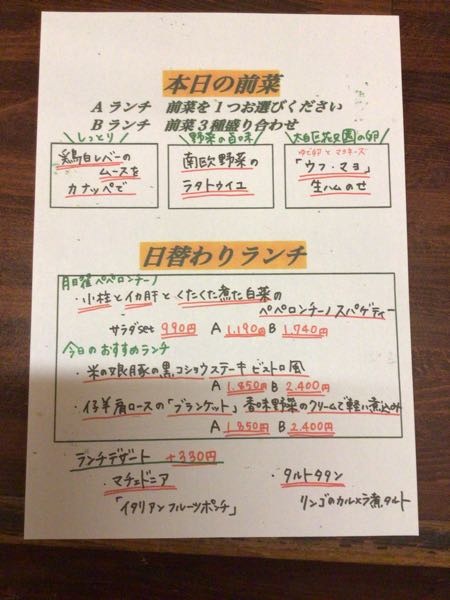 本日の前菜
Aランチ 前菜を1つお選びください
Bランチ 前菜3種盛り合わせ
しっとり
鶏白レバーの
ムースを
カナッペで
野菜の旨味
南欧野菜の
ラタトゥイユ
太白区花兄園の卵
ゆで卵とマヨネーズ
「ウフ・マヨ」
生ハムのせ
日替わりランチ
月曜 ペペロンチーノ
・小柱とイカ肝とくたくた煮た白菜の
ペペロンチーノスパゲティー
サラダset 990円 A 1,190円 B 1,740円
今日のおすすめランチ
・米の娘豚の黒コショウステーキ ビストロ風
A 1,850円 B 2,400円
・仔羊肩ロースの「ブランケット」香味野菜のクリームで軽い煮込み
A 1,850円 B 2,400円
ランチデザート +330円
・マチェドニア
「イタリアンフルーツポンチ」
・タルトタタン
リンゴのカルメラ煮タルト